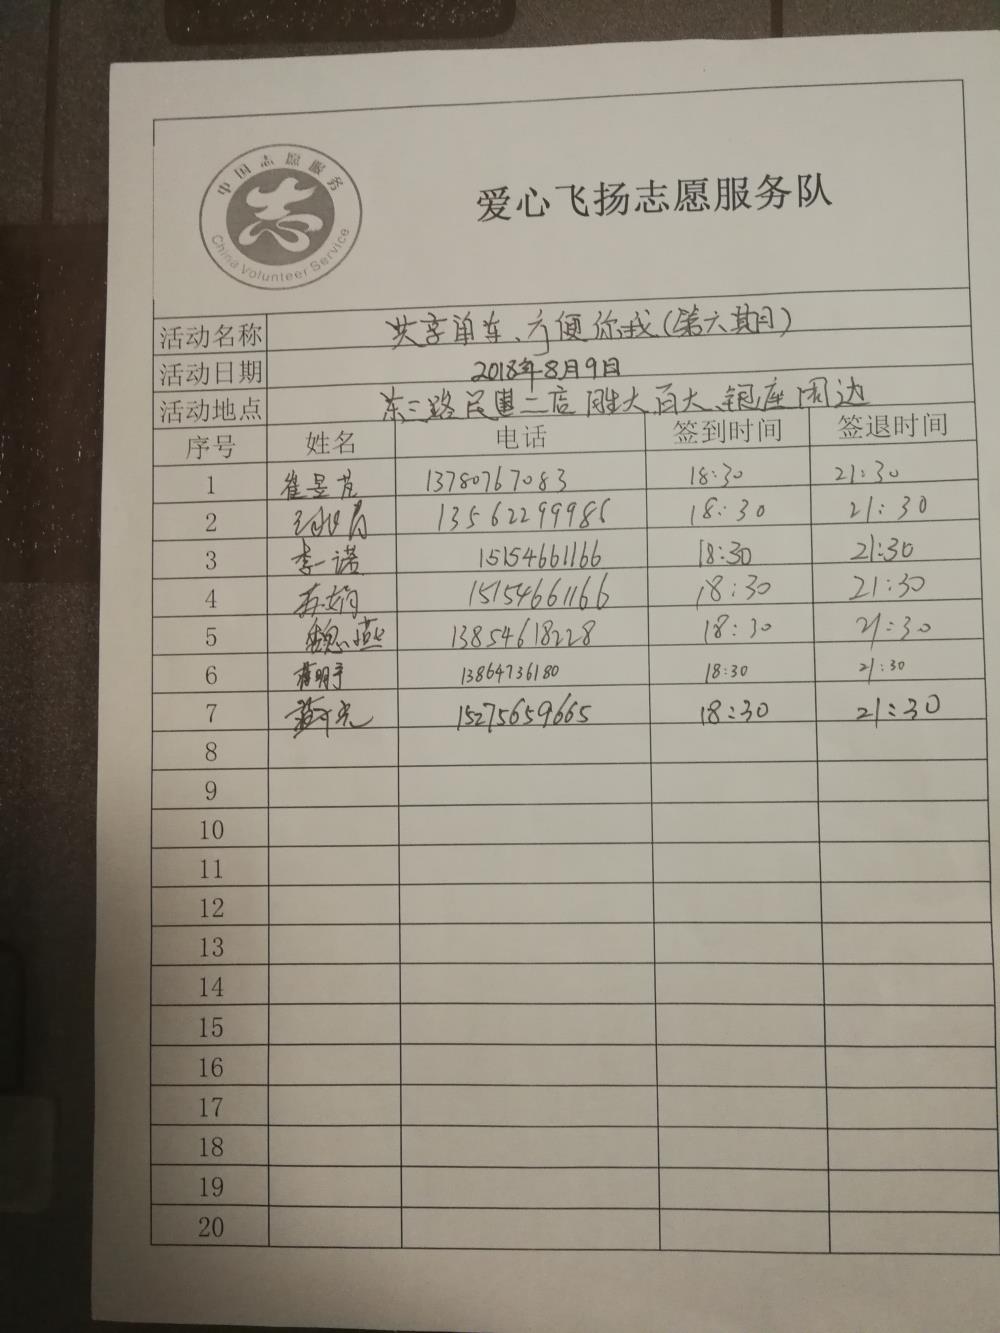 中国志愿服务
志
China Volunteer Service
爱心飞扬志愿服务队
活动名称 共享单车、方便你我(第六期)
活动日期 2018年8月9日
活动地点 东三路民惠二店 胜大百大、银座周边
序号 姓名 电话 签到时间 签退时间
1 崔昱芃 13780767083 18:30 21:30
2 13562299986 18:30 21:30
3 李一诺 15154661166 18:30 21:30
4 15154661166 18:30 21:30
5 魏燕 13854618228 18:30 21:30
6 蒋明宇 13864736180 18:30 21:30
7 15275659665 18:30 21:30
8
9
10
11
12
13
14
15
16
17
18
19
20